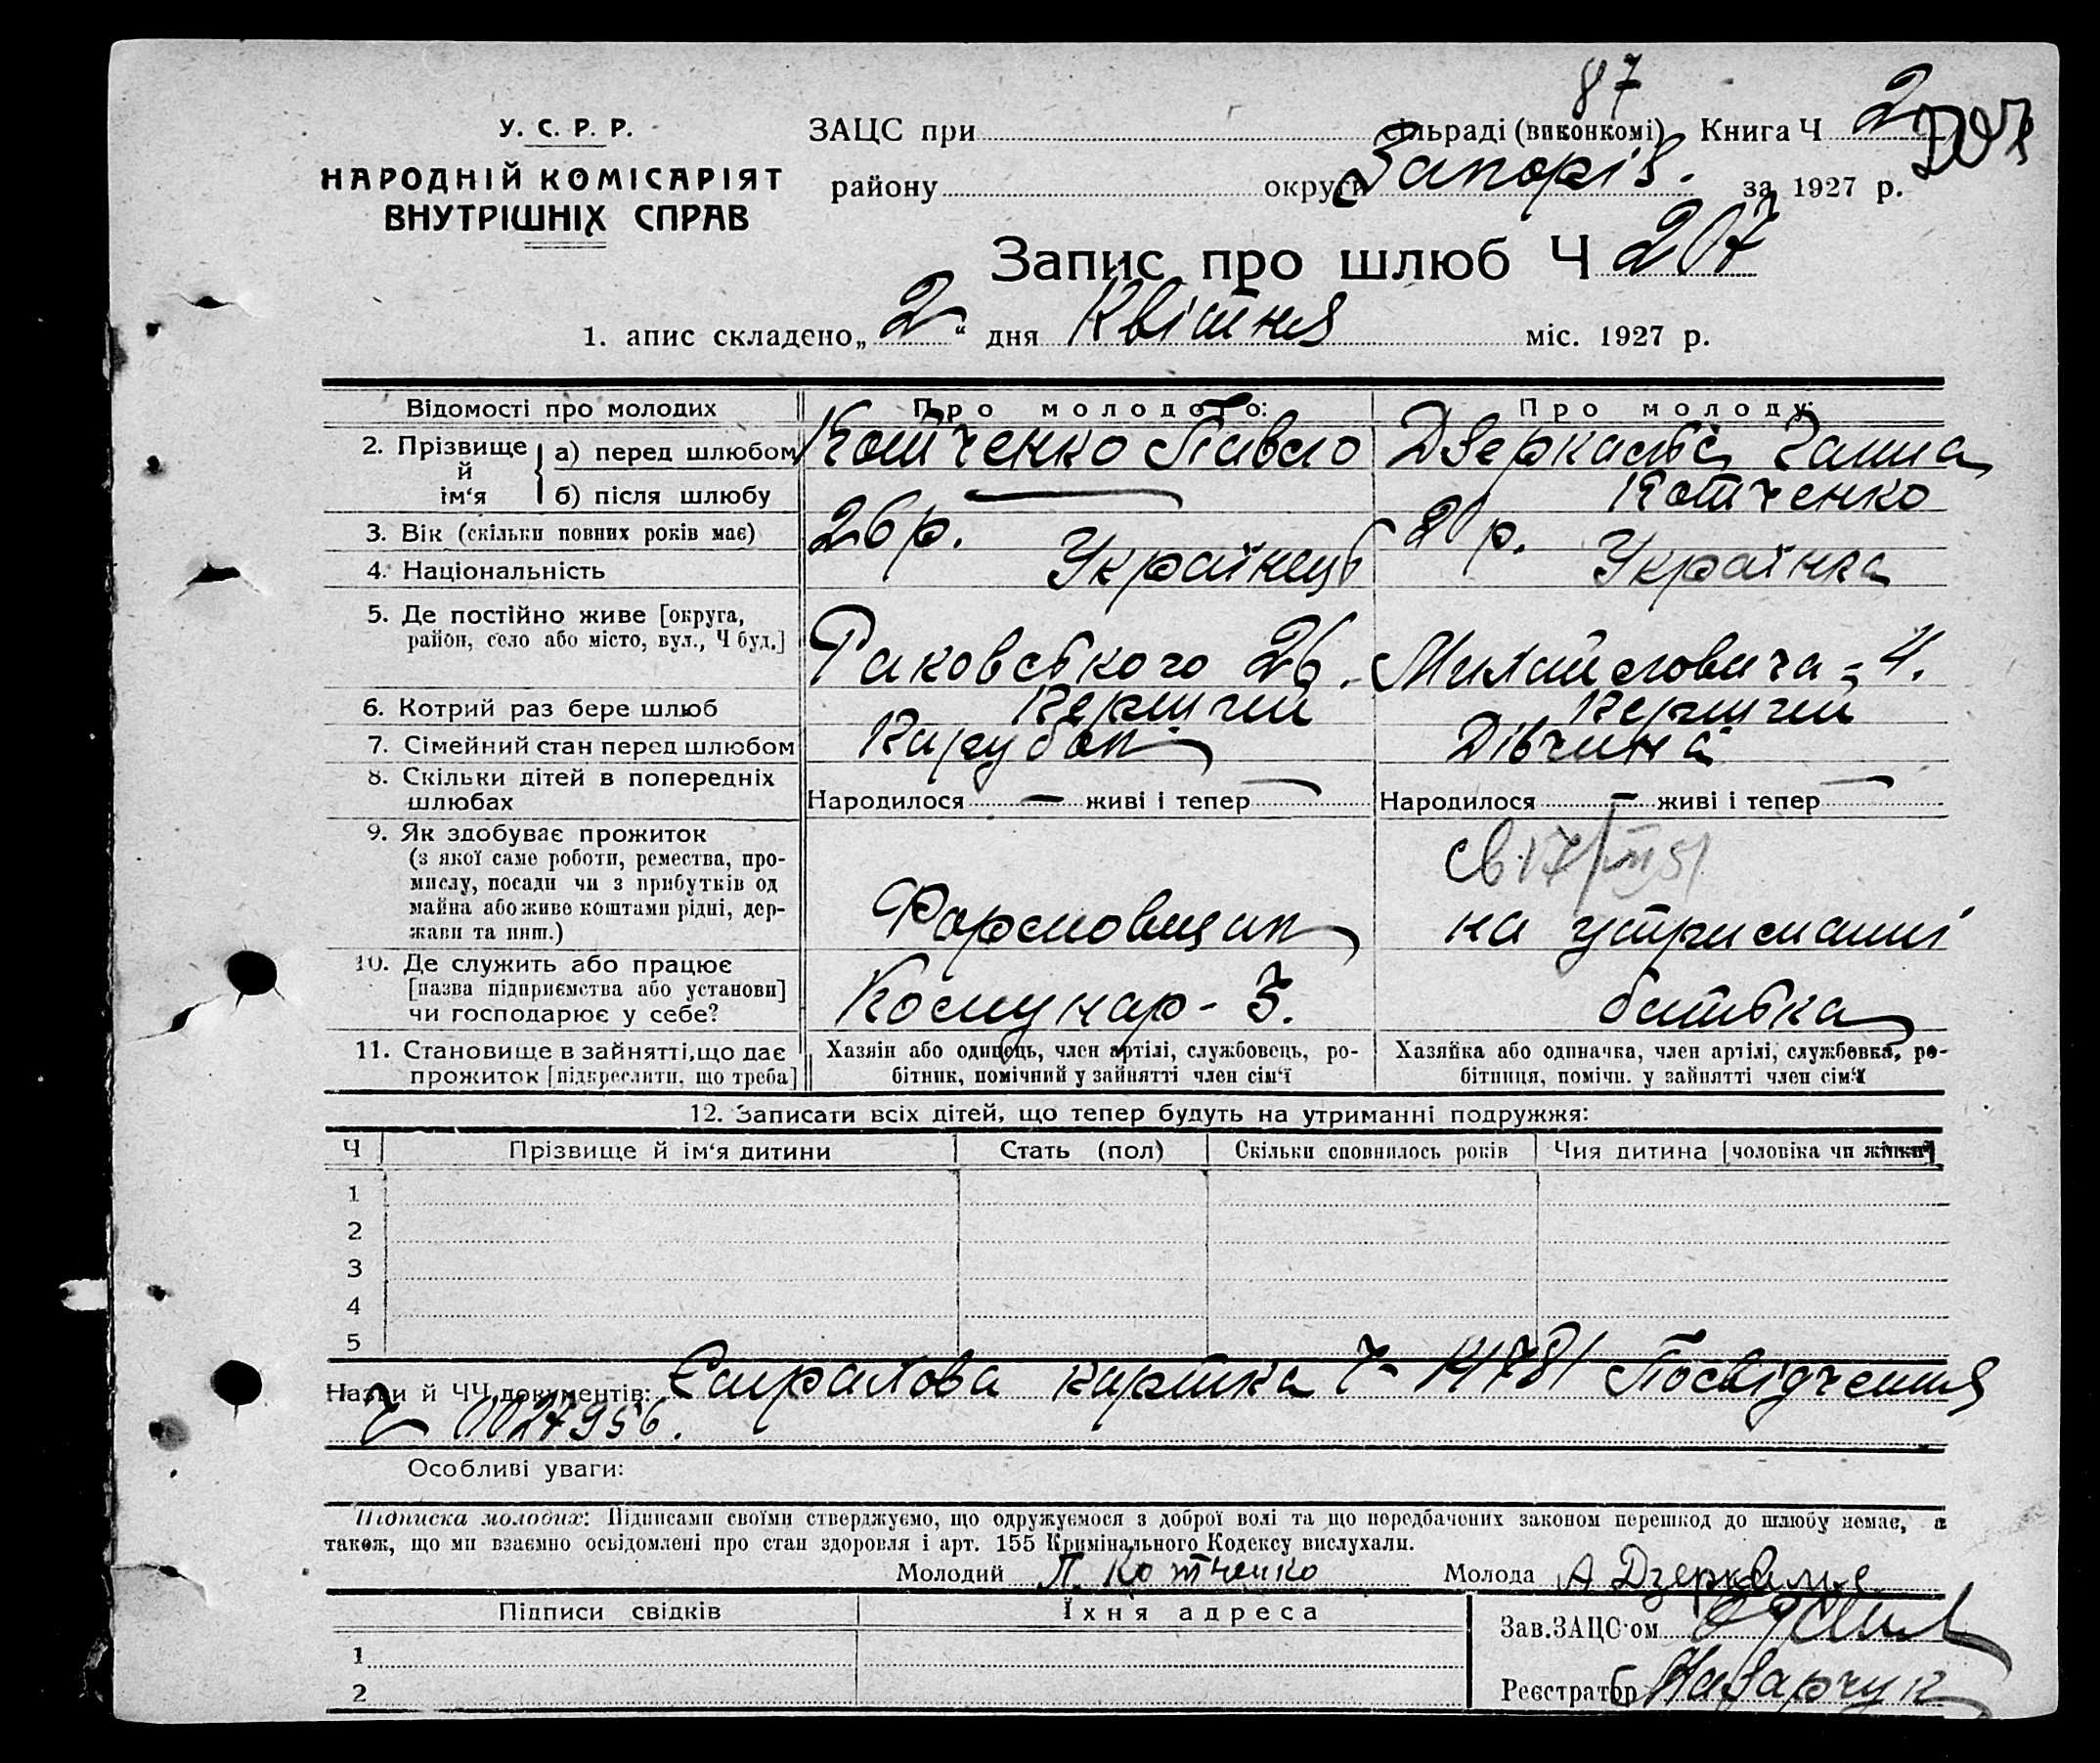 87
У. С. Р. Р.
НАРОДНІЙ КОМІСАРІЯТ
ВНУТРІШНІХ СПРАВ
ЗАЦС при сільраді (виконкомі) Книга Ч 2
району округи Запоріз. за 1927 р.
Запис про шлюб Ч 207
1. апис складено „ 2 “ дня Квітня міс. 1927 р.
Відомості про молодих Про молодого: Про молоду:
2. Прізвище й ім‘я
а) перед шлюбом Котченко Павло Дзеркаль Ганна
б) після шлюбу — Котченко
3. Вік (скільки повних років має) 26 р. р.
4. Національність Українець Українка
5. Де постійно живе [округа,
район, село або місто, вул., Ч буд.] Раковського 26. 4.
6. Котрий раз бере шлюб Перший Перший
7. Сімейний стан перед шлюбом Парубок Дівчина
8. Скільки дітей в попередніх
шлюбах Народилося — живі і тепер — Народилося — живі і тепер —
9. Як здобуває прожиток
(з якої саме роботи, ремества, про-
мислу, посади чи з прибутків од
майна або живе коштами рідні, дер-
жави та инш.) Формовщик на утриманні
10. Де служить або працює
[назва підприємства або установи]
чи господарює у себе? Комунар - З. батька
11. Становище в зайнятті, що дає
прожиток [підкреслити, що треба]
Хазяін або одинець, член артілі, службовець, ро-
бітник, помічний у зайнятті член сім‘ї
Хазяйка або одиначка, член артілі, службовка, ро-
бітниця, помічн. у зайнятті член сім‘ї
12. Записати всіх дітей, що тепер будуть на утриманні подружжя:
Ч Прізвище й ім‘я дитини Стать (пол) Скільки сповнилось років Чия дитина [чоловіка чи жінки]
1
2
3
4
5
Назви й ЧЧ документів: картка Ч 14781 Посвідчення
Ч 0027956.
Особливі уваги:
Підписка молодих: Підписами своїми стверджуємо, що одружуємося з доброї волі та що передбачених законом перешкод до шлюбу немає, а
також, що ми взаємно освідомлені про стан здоровля і арт. 155 Кримінального Кодексу вислухали.
Молодий П. Котченко Молода А Дзеркаль
Підписи свідків Їхня адреса
Зав. ЗАЦС‘ом
1
2
Реєстратор Назарчук